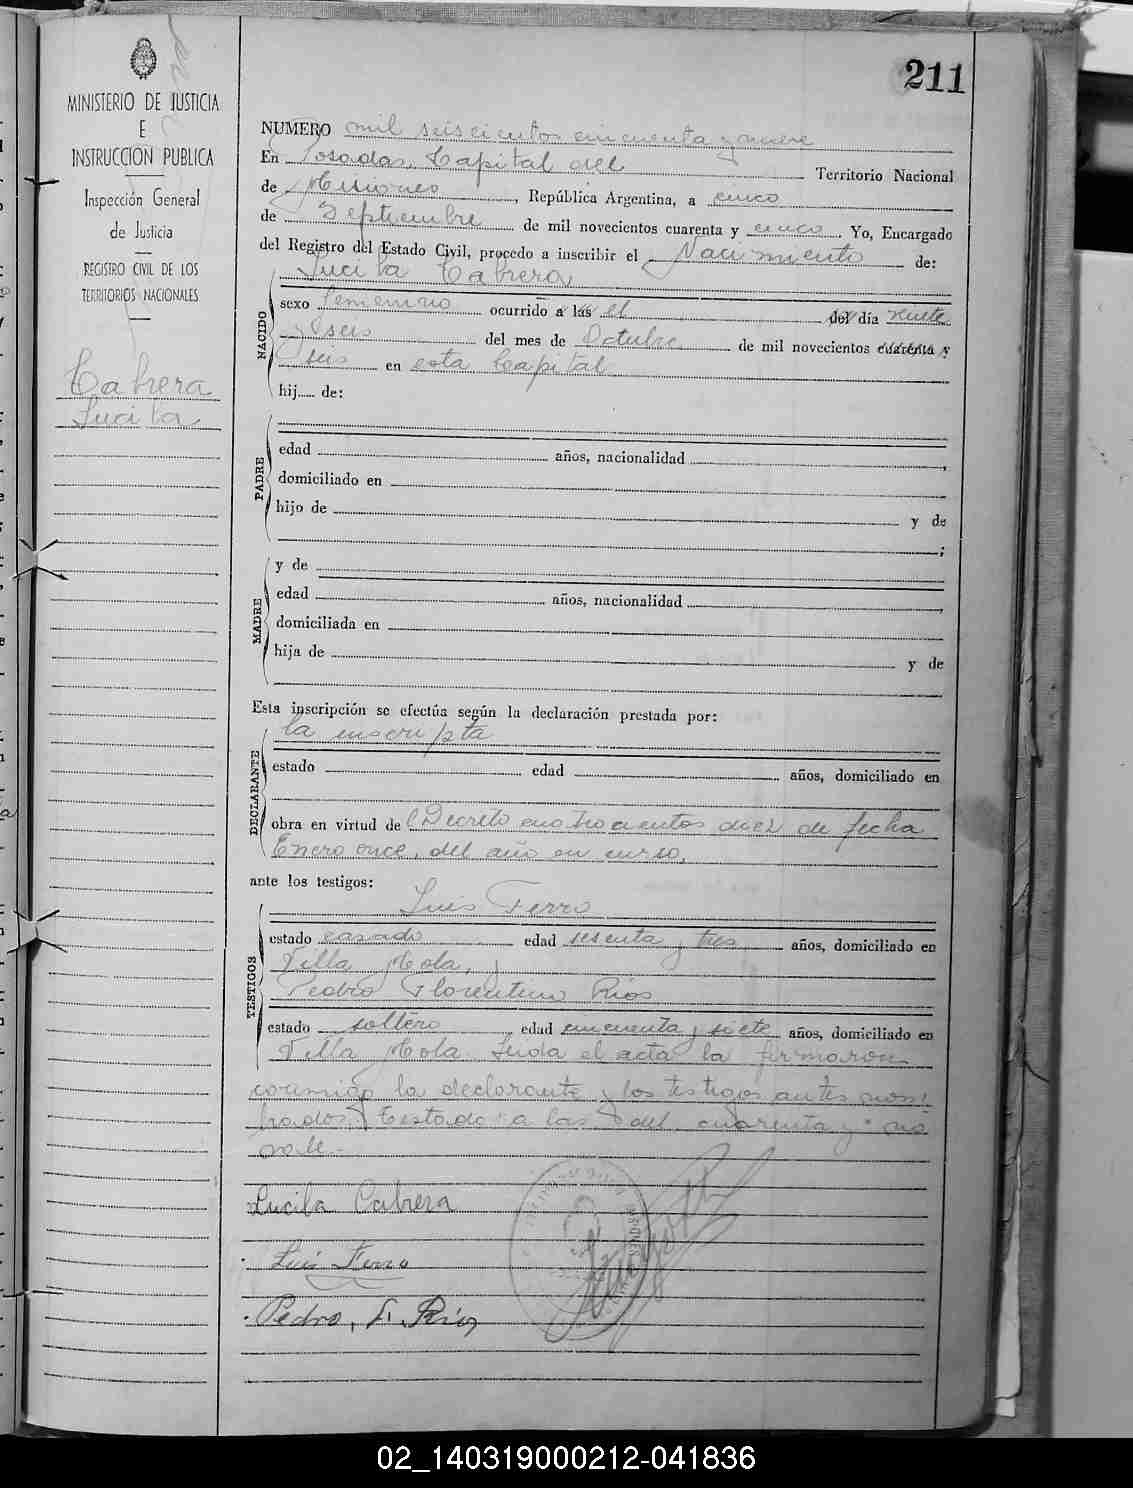 211
MINISTERIO DE JUSTICIA
E
INSTRUCCION PUBLICA
Inspección General
de Justicia
REGISTRO CIVIL DE LOS
TERRITORIOS NACIONALES
Cabrera
Lucila
NUMERO mil seiscientos cincuenta y nueve
En Posadas, Capital del Territorio Nacional
de Misiones, República Argentina, a cinco
de Septiembre de mil novecientos cuarenta y cinco. Yo, Encargado
del Registro del Estado Civil, procedo a inscribir el Nacimiento de:
Lucila Cabrera
NACIDO
sexo femenino ocurrido a las el del día veinte
y seis del mes de Octubre de mil novecientos cuarenta y
seis en esta Capital
hij...... de:
PADRE
edad años, nacionalidad ,
domiciliado en
hijo de y de
;
MADRE
y de
edad años, nacionalidad ,
domiciliada en
hija de y de
Esta inscripción se efectúa según la declaración prestada por:
la inscripta
DECLARANTE
estado edad años, domiciliado en
obra en virtud de Decreto cuatrocientos diez de fecha
Enero once, del año en curso,
ante los testigos:
Luis Ferro
TESTIGOS
estado casado edad sesenta y tres años, domiciliado en
Villa Mola, y
Pedro Florentino Rios
estado soltero edad cincuenta y siete años, domiciliado en
Villa Mola. Leida el acta la firmaron
conmigo la declarante y los testigos antes nom-
brados. Testado: a las del cuarenta y: no
vale.-
Lucila Cabrera
Luis Ferro
Pedro, F. Ríos
02_140319000212-041836